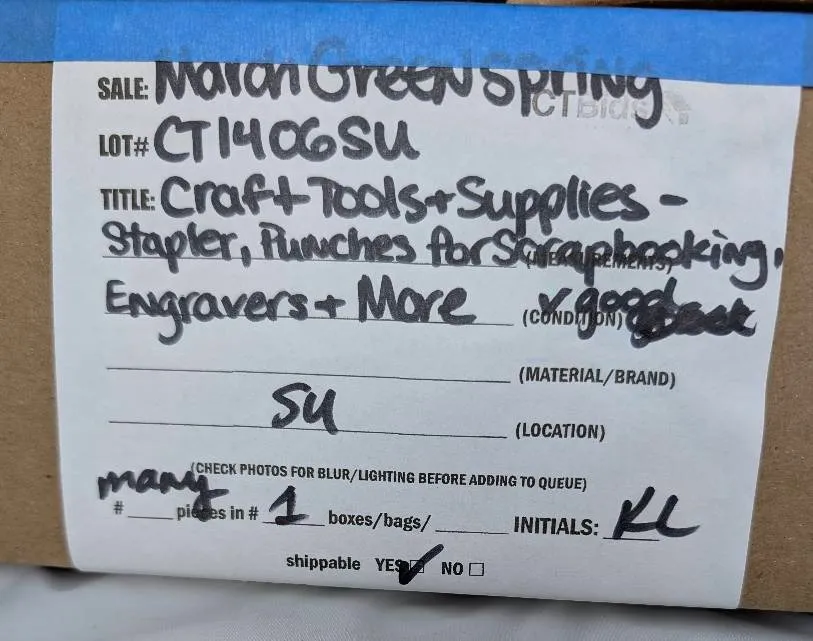 SALE: March Green Spring
CTBids
LOT# CT1406SU
TITLE: Craft Tools + Supplies -
Stapler, Punches for Scrapbooking,
(MEASUREMENTS)
Engravers + More (CONDITION) v good
(MATERIAL/BRAND)
SU (LOCATION)
(CHECK PHOTOS FOR BLUR/LIGHTING BEFORE ADDING TO QUEUE)
# many pieces in # 1 boxes/bags/ INITIALS: KL
shippable YES ✓ NO ☐